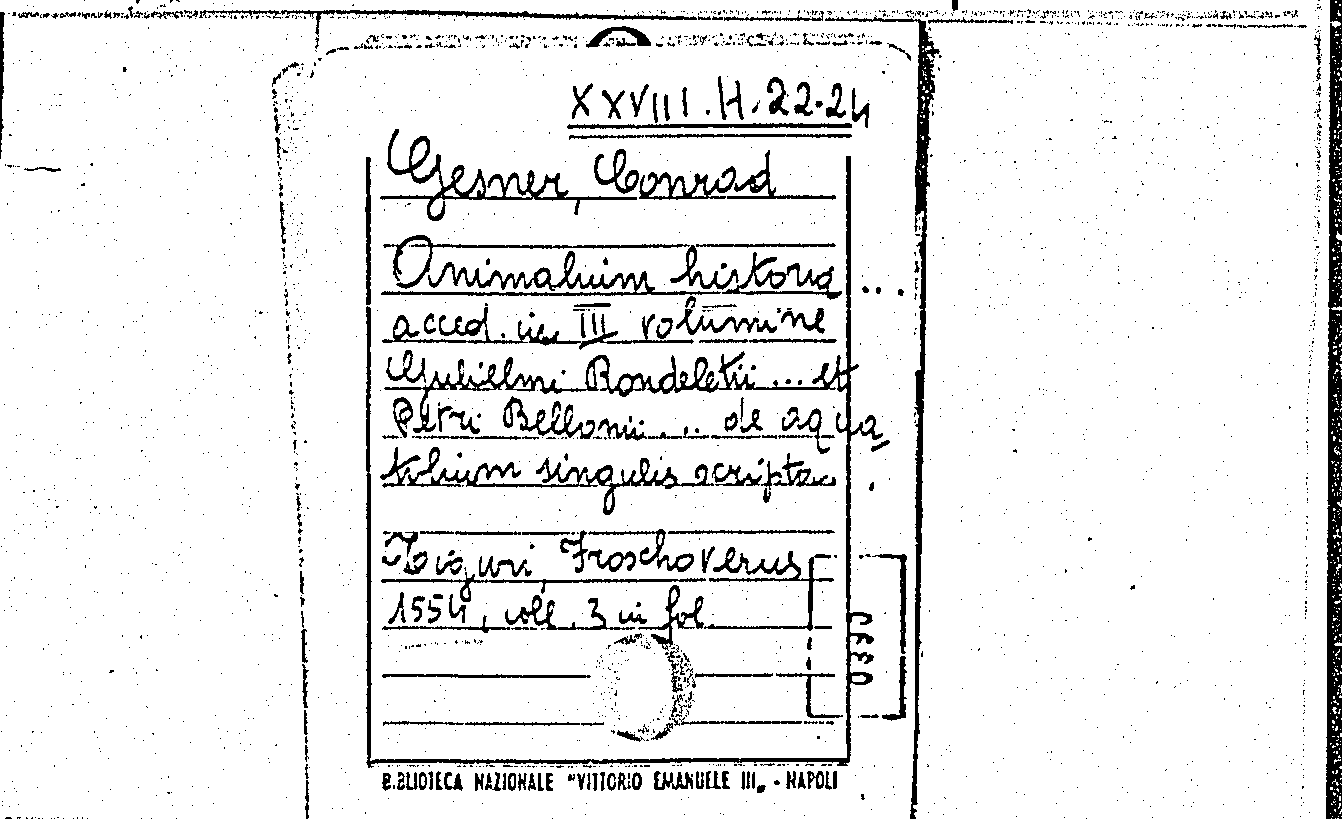 XXVIII.H.22-24
Gesner, Conrad
Animalium historia ...
acced. in III volumine
Gulielmi Rondeletii ... et
Petri Bellonii ... de aqua
tilium singulis scripta .
Tiguri, Froschoverus
1554, voll. 3 in fol.
BIBLIOTECA NAZIONALE "VITTORIO EMANUELE III„ - NAPOLI